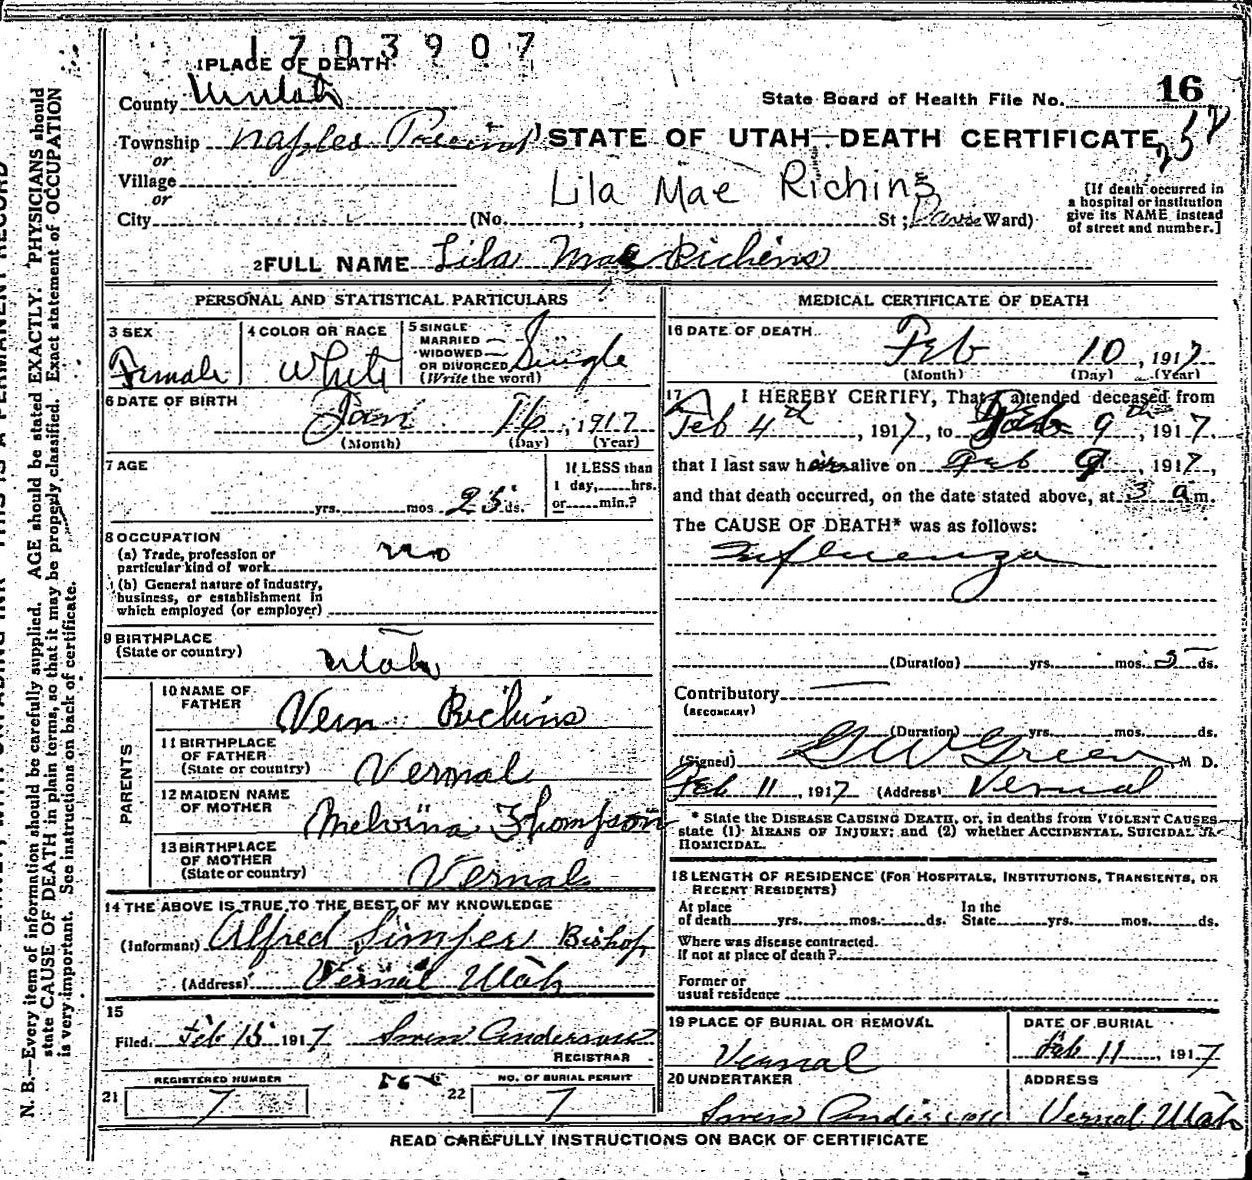 1703907
1 PLACE OF DEATH
County Uintah
State Board of Health File No. 16
Township Naples Precinct
STATE OF UTAH—DEATH CERTIFICATE
or
Village
Lila Mae Richins
or
City (No. , St ; Ward)
[If death occurred in
a hospital or institution
give its NAME instead
of street and number.]
2 FULL NAME Lila Mae Richins
PERSONAL AND STATISTICAL PARTICULARS
3 SEX
Female
4 COLOR OR RACE
White
5 SINGLE
MARRIED
WIDOWED
OR DIVORCED
(Write the word)
Single
6 DATE OF BIRTH
Jan 16, 1917
(Month) (Day) (Year)
7 AGE
yrs. mos. 25 ds.
If LESS than
1 day, hrs.
or min.?
8 OCCUPATION
(a) Trade, profession or
particular kind of work no
(b) General nature of industry,
business, or establishment in
which employed (or employer)
9 BIRTHPLACE
(State or country)
Utah
PARENTS
10 NAME OF
FATHER
Vern Richins
11 BIRTHPLACE
OF FATHER
(State or country)
Vernal
12 MAIDEN NAME
OF MOTHER
Melvina Thompson
13 BIRTHPLACE
OF MOTHER
(State or country)
Vernal
14 THE ABOVE IS TRUE TO THE BEST OF MY KNOWLEDGE
(Informant) Alfred Simper Bishop
(Address) Vernal Utah
15
Filed Feb 15 1917 Swen Anderson
REGISTRAR
21 REGISTERED NUMBER
7
22 NO. OF BURIAL PERMIT
7
MEDICAL CERTIFICATE OF DEATH
16 DATE OF DEATH
Feb 10, 1917
(Month) (Day) (Year)
17 I HEREBY CERTIFY, That I attended deceased from
Feb 4th, 1917, to Feb 9th, 1917.
that I last saw h alive on Feb 9, 1917,
and that death occurred, on the date stated above, at 3 a m.
The CAUSE OF DEATH* was as follows:
Influenza
(Duration) yrs. mos. 5 ds.
Contributory
(SECONDARY)
(Duration) yrs. mos. ds.
(Signed) G W Green, M D.
Feb 11, 1917 (Address) Vernal
* State the DISEASE CAUSING DEATH, or, in deaths from VIOLENT CAUSES
state (1) MEANS OF INJURY; and (2) whether ACCIDENTAL, SUICIDAL or
HOMICIDAL.
18 LENGTH OF RESIDENCE (FOR HOSPITALS, INSTITUTIONS, TRANSIENTS, OR
RECENT RESIDENTS)
At place
of death yrs. mos. ds.
In the
State yrs. mos. ds.
Where was disease contracted
If not at place of death?
Former or
usual residence
19 PLACE OF BURIAL OR REMOVAL
Vernal
DATE OF BURIAL
Feb 11, 1917
20 UNDERTAKER
Swen Anderson
ADDRESS
Vernal Utah
READ CAREFULLY INSTRUCTIONS ON BACK OF CERTIFICATE
N. B.—Every item of information should be carefully supplied. AGE should be stated EXACTLY. PHYSICIANS should
state CAUSE OF DEATH in plain terms, so that it may be properly classified. Exact statement of OCCUPATION
is very important. See instructions on back of certificate.